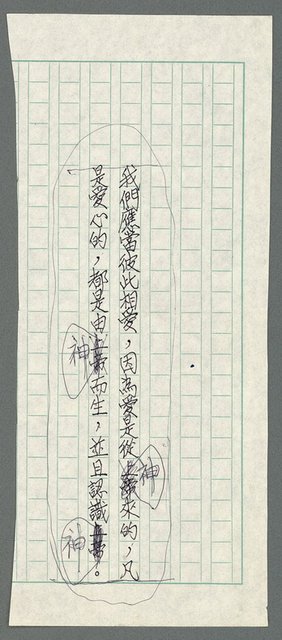 我們應當彼此相愛，因為愛是從上帝來的，凡
神
是愛心的，都是由上帝而生，並且認識上帝。
神
神